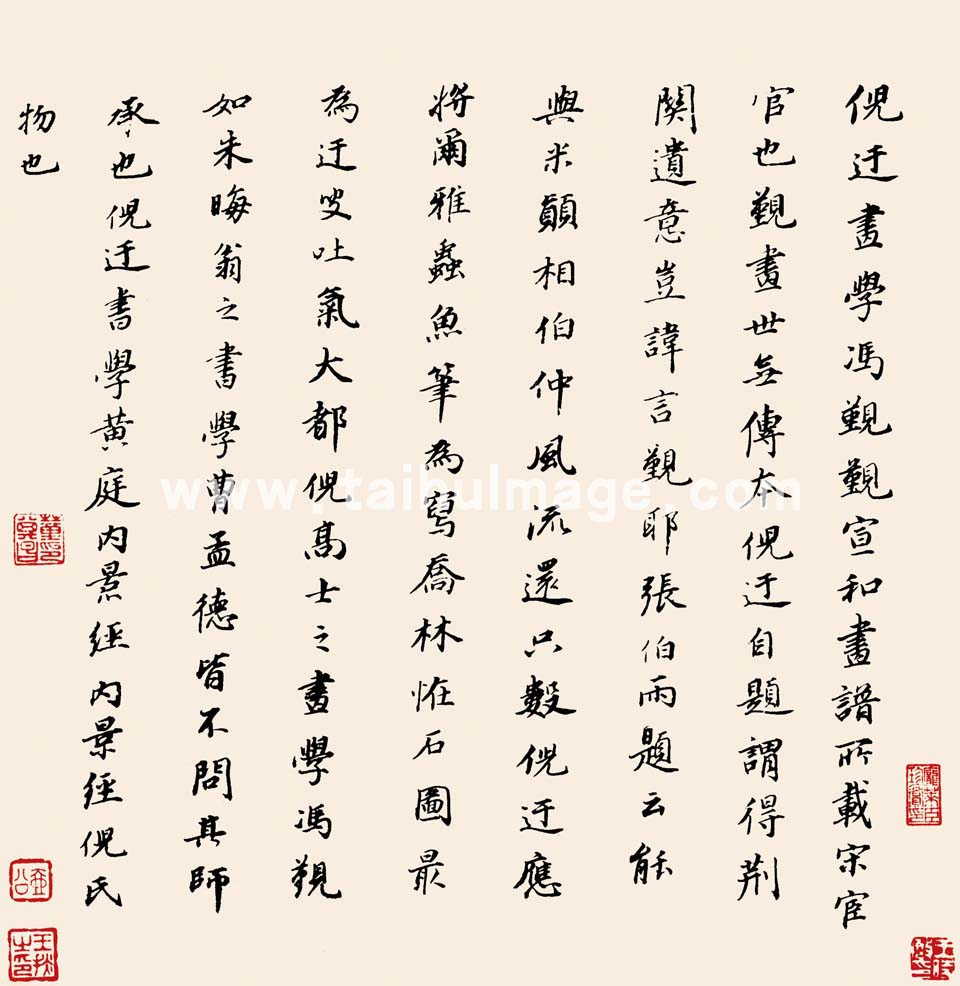 倪迂畫學馮覲覲宣和畫譜所載宋宦
官也覲畫世無傳本倪迂自題謂得荆
關遺意豈諱言覲耶張伯雨題云能
與米顛相伯仲風流還只數倪迂應
將爾雅蟲魚筆為寫喬林恠石圖最
為迂叟吐氣大都倪高士之畫學馮覲
如朱晦翁之書學曹孟德皆不問其師
承也倪迂書學黄庭内景經内景經倪氏
物也
www.taibuImage.com